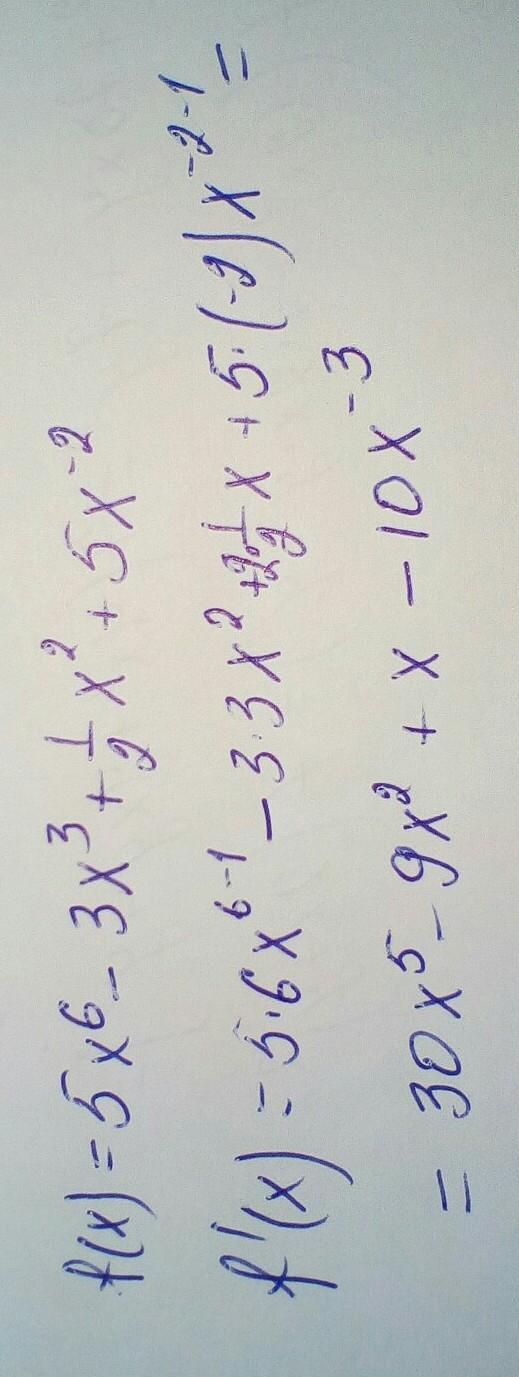 f(x) = 5x⁶ - 3x³ + 1/2 x² + 5x⁻²
f'(x) = 5·6x⁶⁻¹ - 3·3x² + 2·1/2 x + 5·(-2)x⁻²⁻¹ =
= 30x⁵ - 9x² + x - 10x⁻³